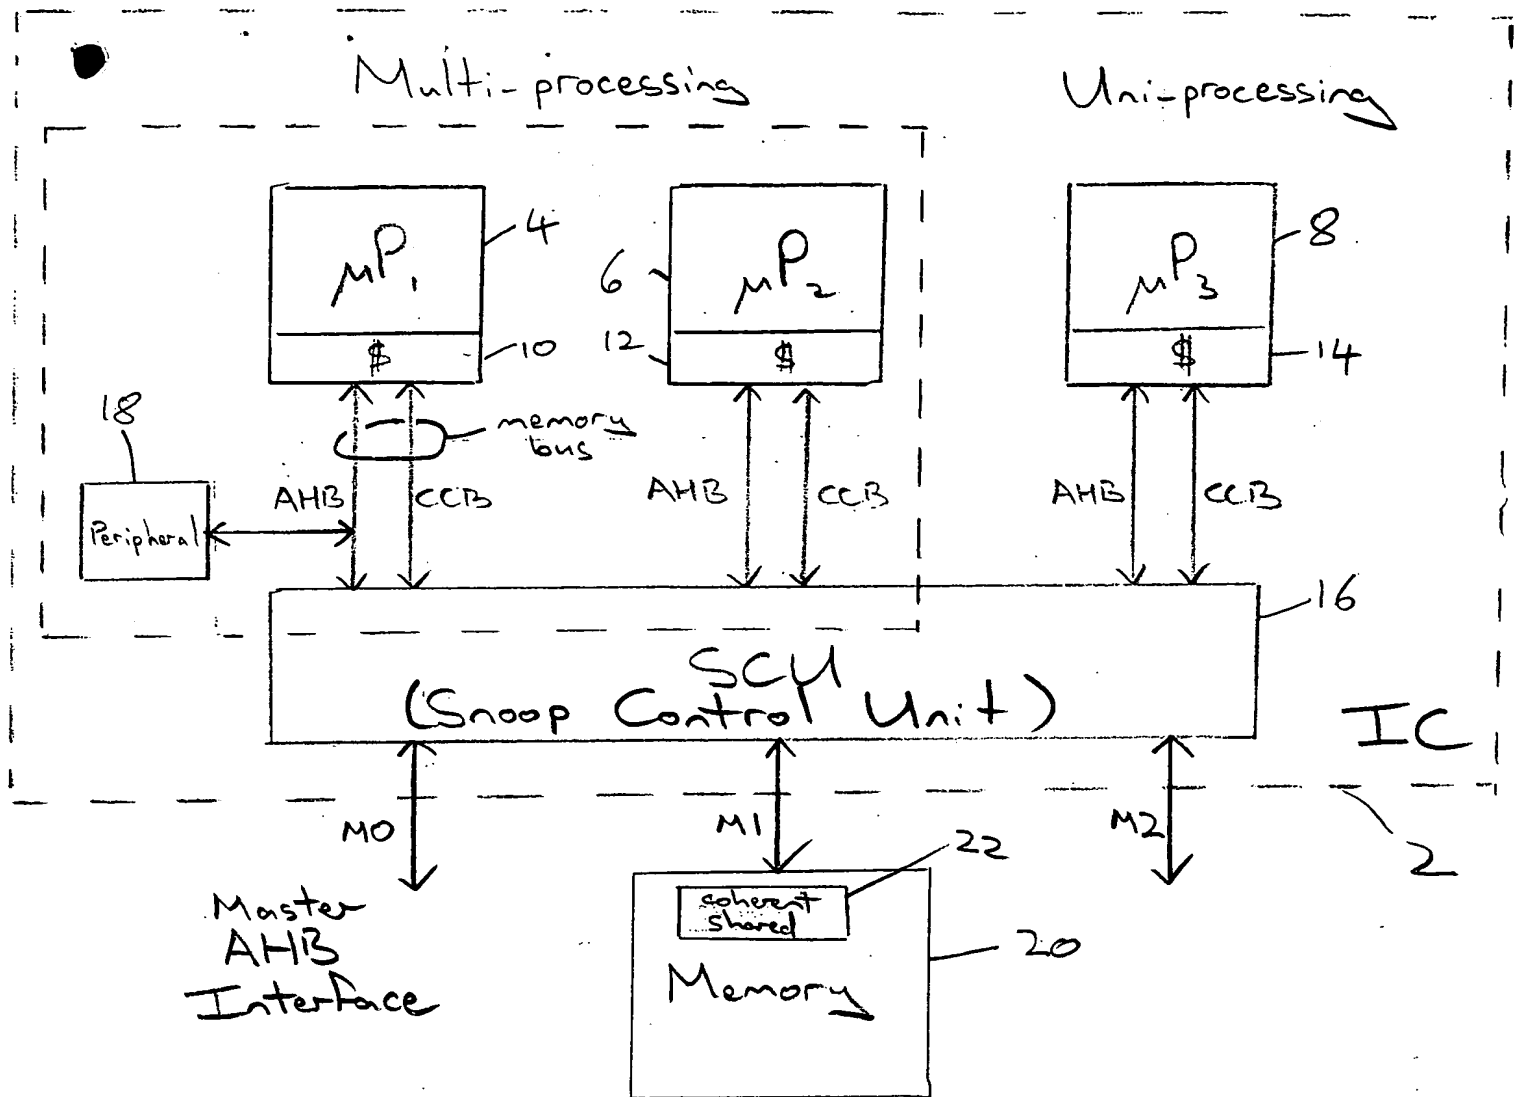 Multi-processing
Uni-processing
μP1
4
6
μP2
μP3
8
$
10
12
$
$
14
18
memory
bus
Peripheral
AHB
CCB
AHB
CCB
AHB
CCB
16
SCU
(Snoop Control Unit)
IC
M0
M1
M2
2
22
coherent
shared
20
Memory
Master
AHB
Interface